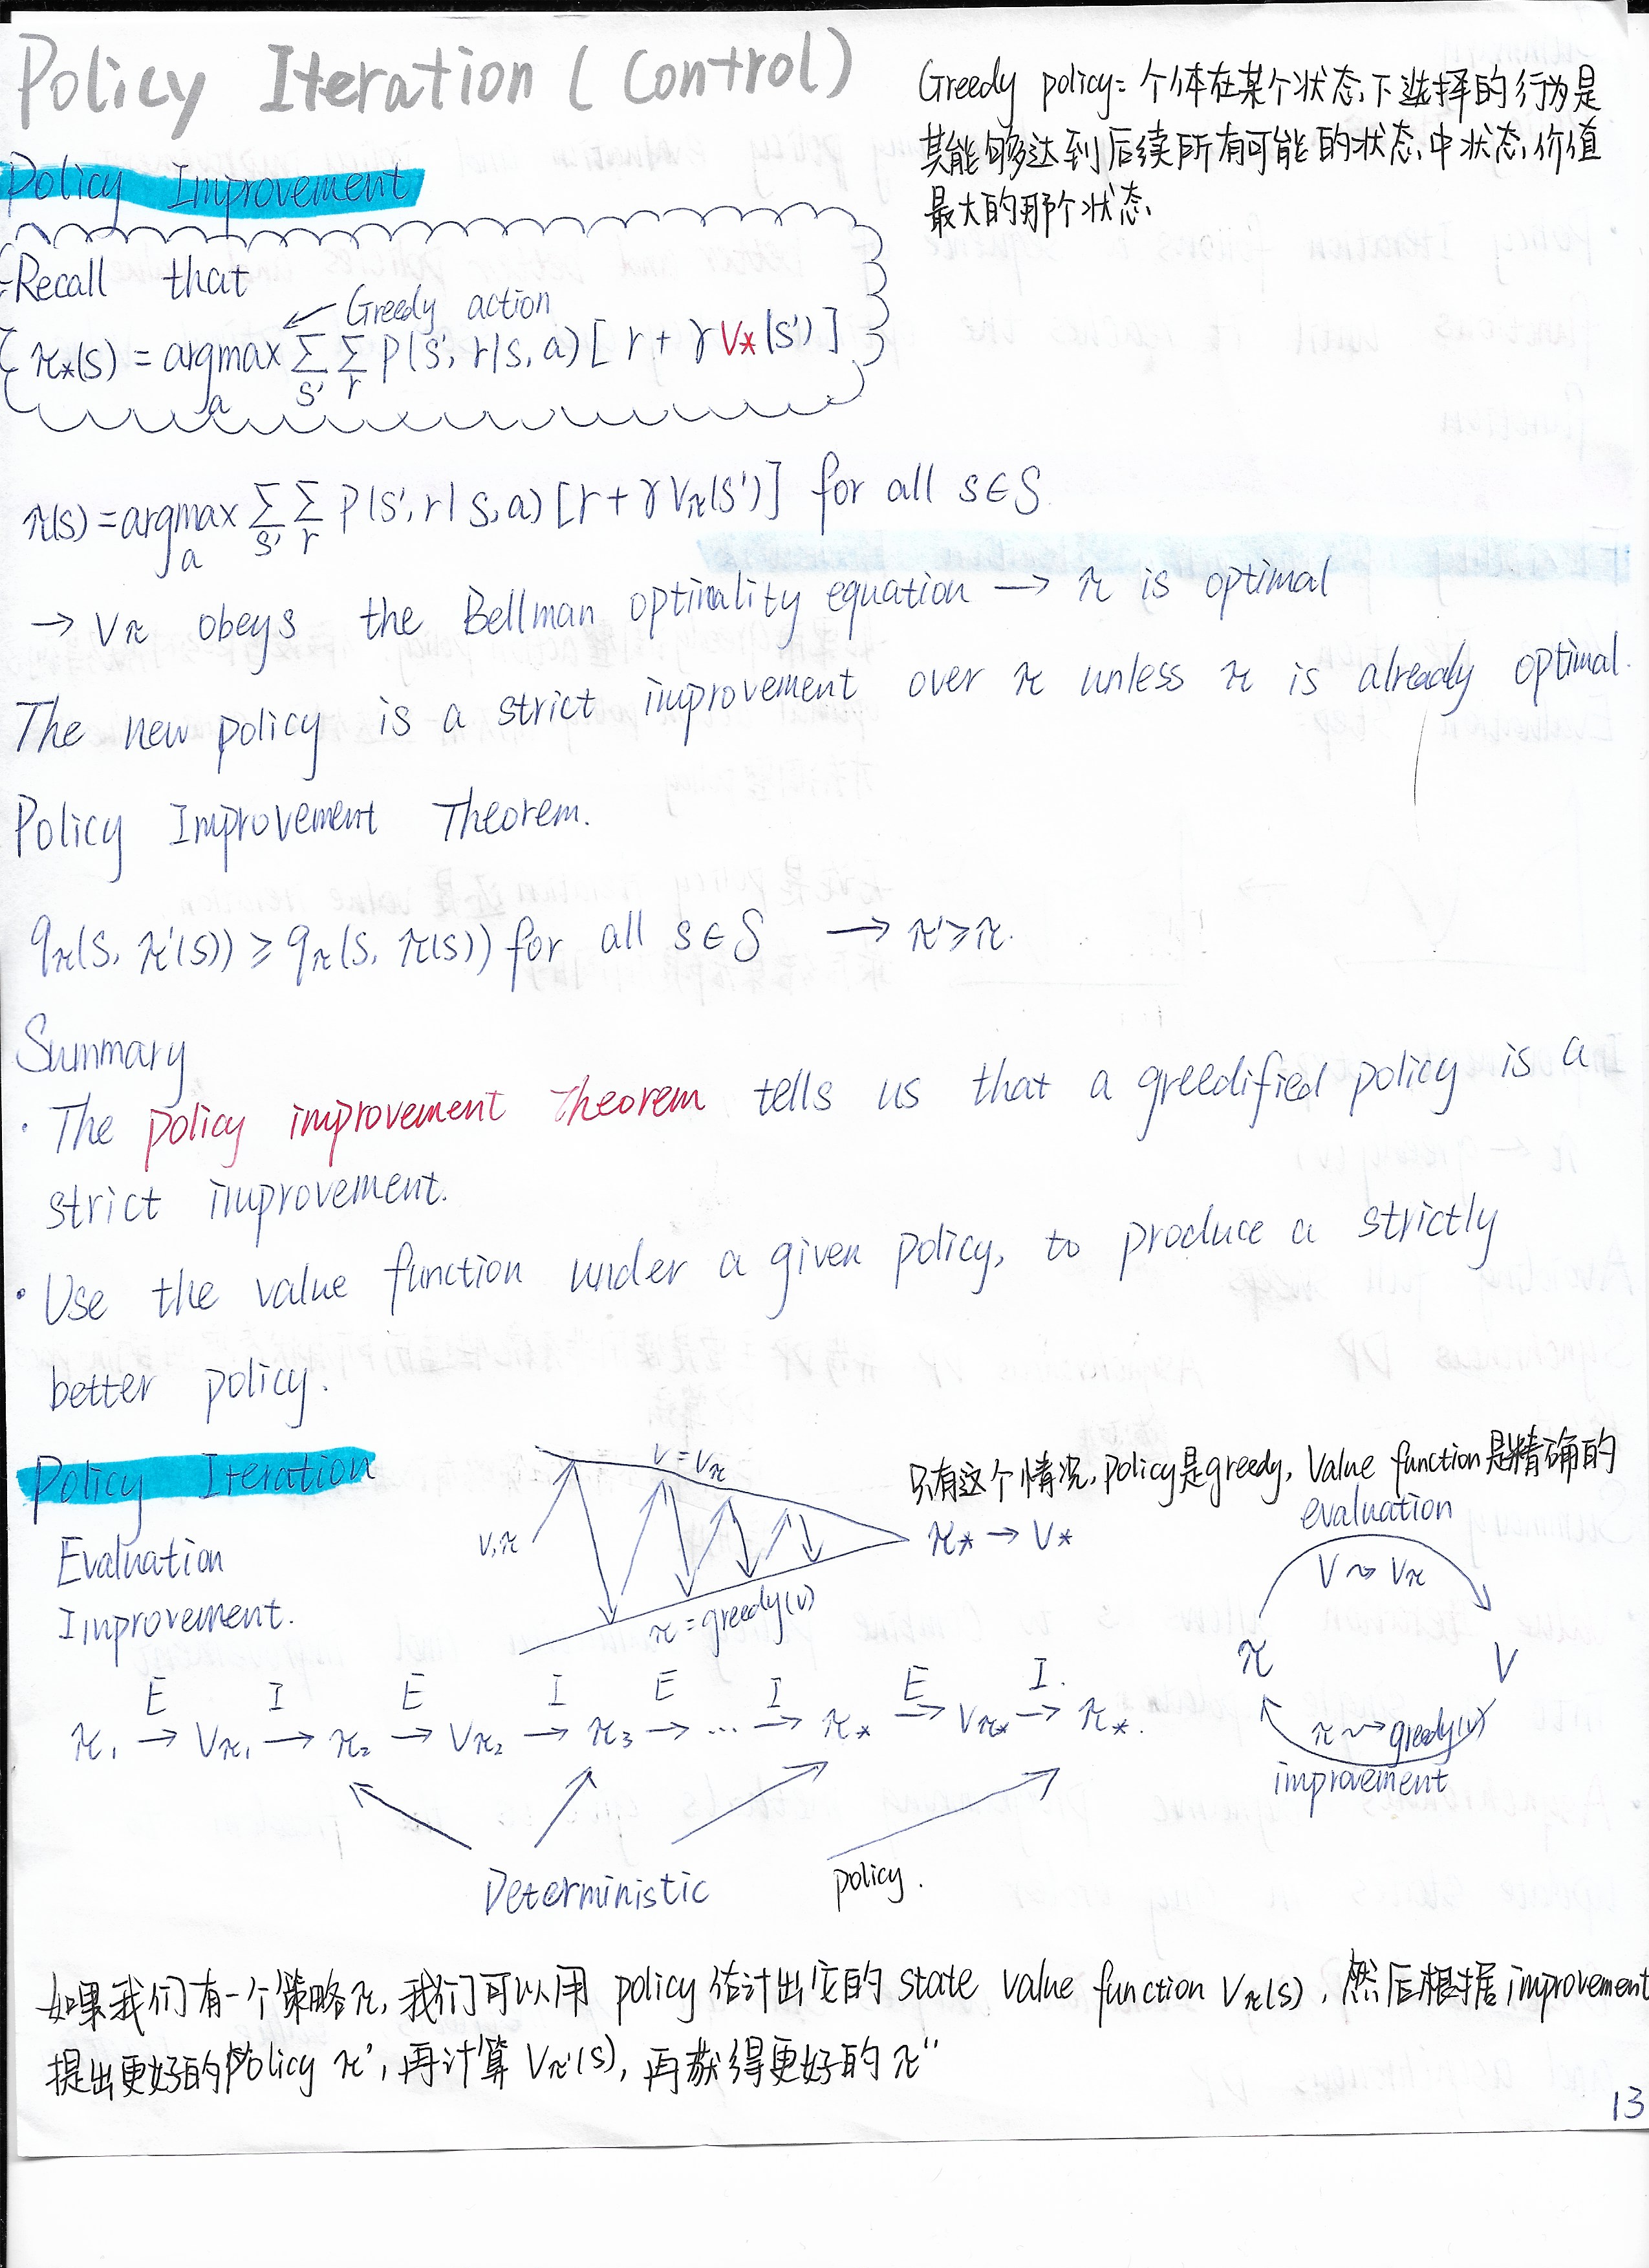 Policy Iteration (Control)
Greedy policy= 个体在某个状态下选择的行为是
其能够达到后续所有可能的状态中状态价值
最大的那个状态
Policy Improvement
Recall that
Greedy action
π*(s) = argmax_a Σ_s' Σ_r P(s', r|s, a) [r + γ V*(s')]
π(s) = argmax_a Σ_s' Σ_r P(s', r|s, a) [r + γ Vπ(s')] for all s∈S
→ Vπ obeys the Bellman optimality equation → π is optimal
The new policy is a strict improvement over π unless π is already optimal.
Policy Improvement Theorem.
qπ(s, π'(s)) ≥ qπ(s, π(s)) for all s∈S → π' ≥ π.
Summary
· The policy improvement theorem tells us that a greedified policy is a
strict improvement.
· Use the value function under a given policy, to produce a strictly
better policy.
Policy Iteration
Evaluation
Improvement.
V = Vπ
V, π
π = greedy(V)
只有这个情况, policy是greedy, Value function是精确的
π* → V*
evaluation
V ⇝ Vπ
π V
π ⇝ greedy(V)
improvement
E I E I E I E I.
π₁ → Vπ₁ → π₂ → Vπ₂ → π₃ → ... → π* → Vπ* → π*.
Deterministic policy.
如果我们有一个策略π, 我们可以用 policy 估计出它的 state value function Vπ(s), 然后根据 improvement
提出更好的policy π', 再计算 Vπ'(s), 再获得更好的 π''
13